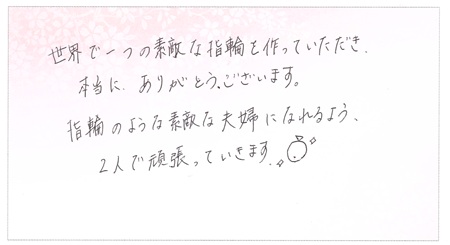 世界で一つの素敵な指輪を作っていただき、
本当に、ありがとうございます。
指輪のような素敵な夫婦になれるよう、
2人で頑張っていきます。